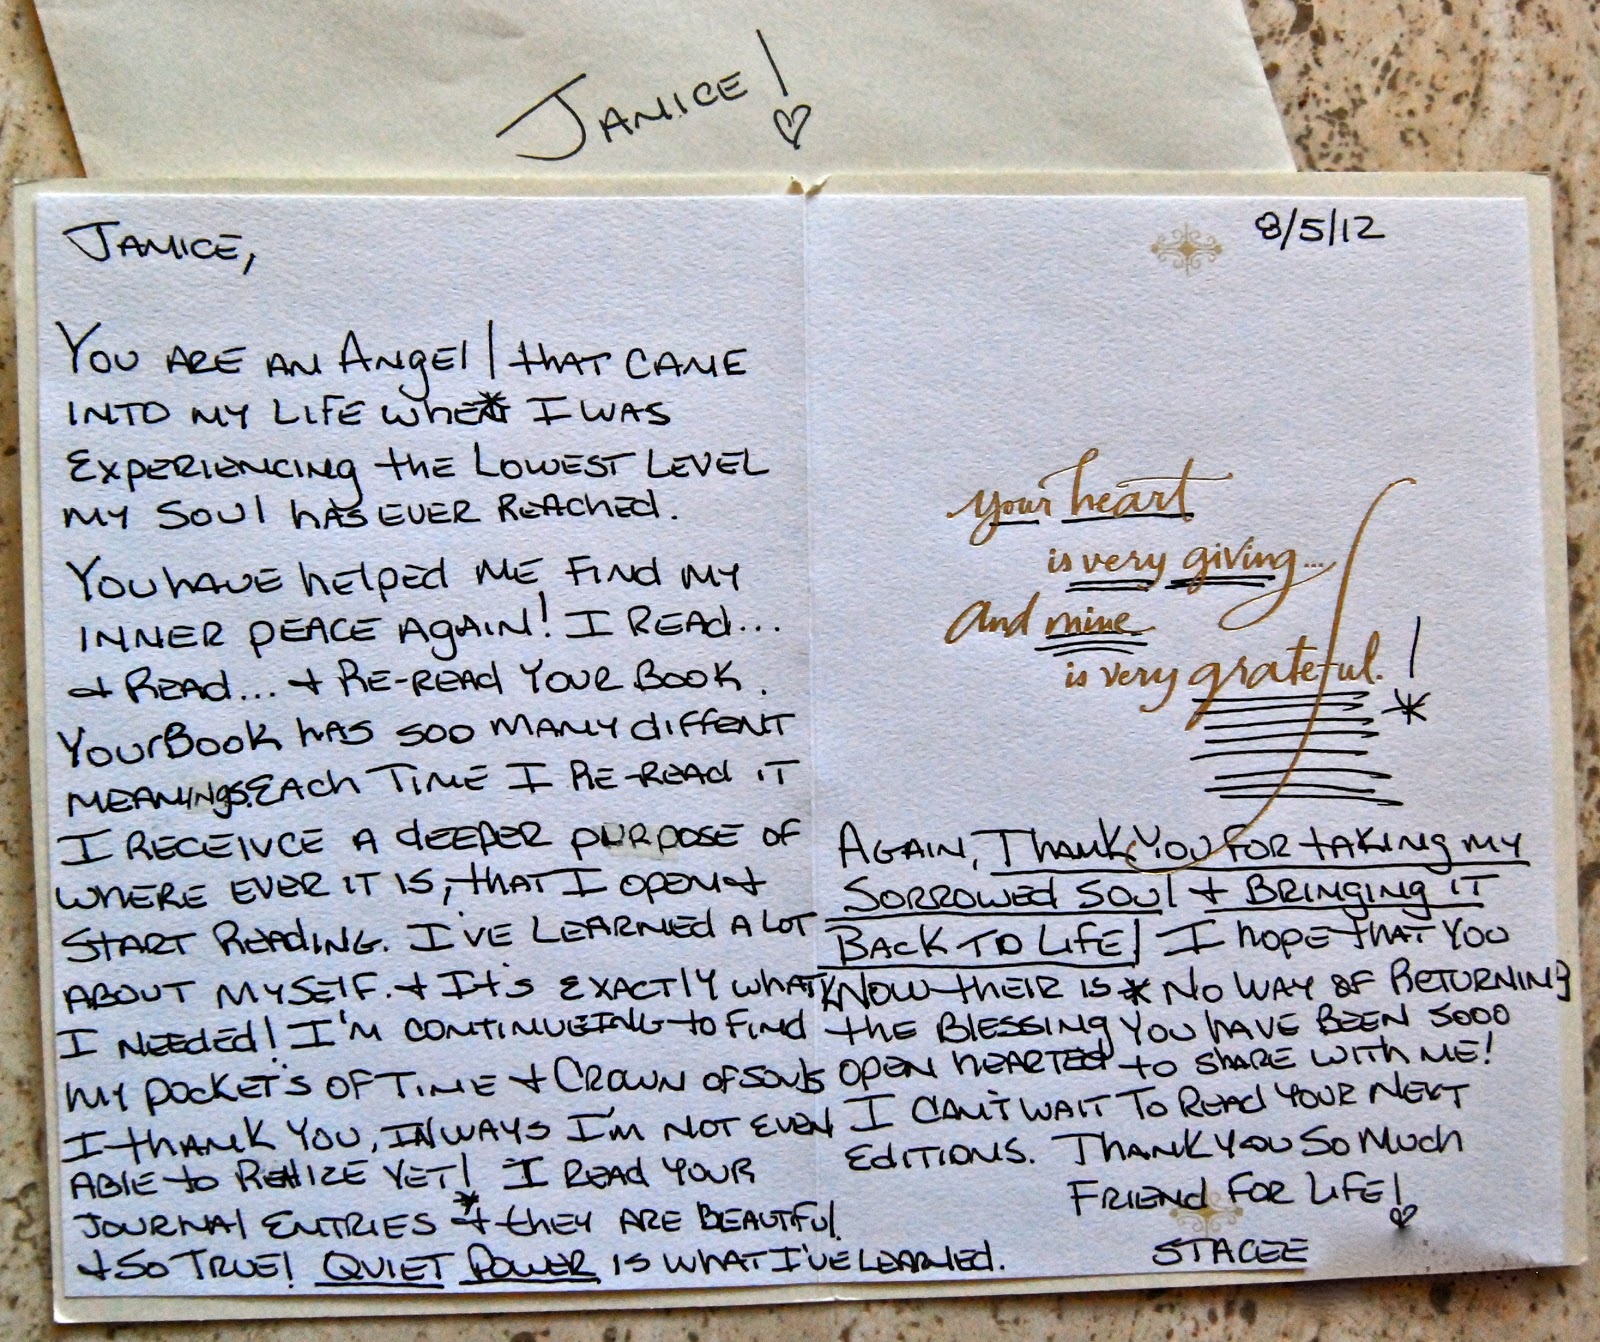 JANICE!
JANICE,
YOU ARE AN ANGEl! thAT CAME
INTO MY LIFE WhEN I WAS
EXPERIENCINg thE LOWEST LEVEL
MY SOUl hAS EVER REAChEd.
YOU hAVE hElpEd ME FINd MY
INNER PEACE AgAIN! I REAd...
& READ... & RE-REAd YOUR BOOK.
YOUR BOOK hAS SOO MANY diFFENT
MEANINgS. EACh TIME I RE-REAd IT
I RECEIVCE A dEEPER PURPOSE OF
WhERE EVER IT IS, thAT I OPEN &
START REAdING. I'VE LEARNEd A LOT
ABOUT MYSElF. & It's EXACTlY WhAT
I NEEdEd! I'M CONTINUEING to FINd
MY POCKET'S OF TIME & CROWN OF SOUlS
I thANK YOU, IN WAYS I'M NOT EVEN
ABlE to REAlIZE YET! I REAd YOUR
JOURNAl ENTRIES & thEY ARE BEAUTIFUl
& SO TRUE! QUIET POWER IS WhAT I'VE LEARNEd.
8/5/12
your heart
is very giving...
and mine
is very grateful. !
*
AGAIN, ThANK YOU FOR tAKINg MY
SORROWEd SOUl & BRINGINg IT
BACK TO LIFE! I hOPE thAT YOU
KNOW thEIR IS * NO WAY OF RETURNINg
thE BlESSINg YOU hAVE BEEN SOOO
OPEN hEARTEd to ShARE WITh ME!
I CAN'T WAIT TO REAd YOUR NEXT
EdITIONS. ThANK YOU SO MUCh
FRIENd FOR LIFE!
STACEE